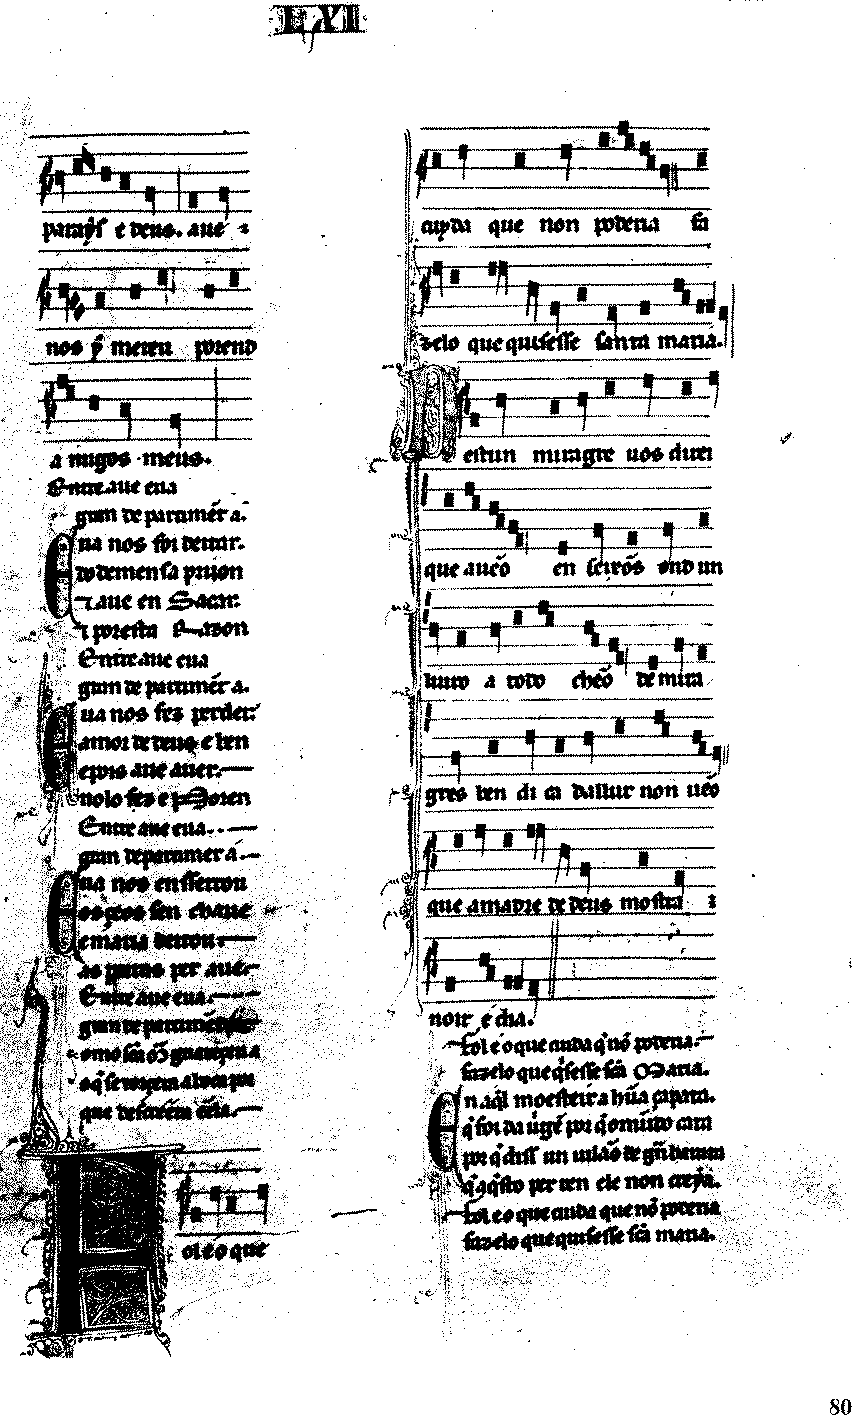 LXI
parayſ e deus. aue ⁊
nos ꝑ meteu prend
a migos meus.
Entre aue eua
gran departimẽt a.
Eua nos foi deitar.
do dem en ſa priijon
⁊ aue en Sacar.
⁊ por eſta Razon
Entre aue eua
gran de partimẽt a.
Eua nos fez perder.
amor de deus e ben
e pois aue auer.
nolo fez e por en
Entre aue eua.
gran departimet a.
Eua nos enſſerrou
os çeos ſen chaue
e maria britou.
as portas per aue.
Entre aue eua.
gran de partimẽt
que
ol e o que
cuyda que non poderia fa
zelo que quiſeſſe ſanta maria.
D eſt un miragre uos direi
que auẽo en ſeixõs ond un
liuro a todo chẽo de mira
gres ben di ca dallur non uẽo
que a madre de deus moſtra ⁊
noit e dia.
Fol e o que cuida q̃ nõ poderia.
fazelo que q̃ſeſſe ſcã Maria.
En aql̃ moeſteir a hũa çapata.
q̃ foi da uirgẽ por q̃ o mũdo cata
por q̃ diſſ un uilão de gñ barata
q̃ aq̃ſto per ren ele non creya.
Fol e o que cuida que nõ poderia
fazelo que quiſeſſe ſcã maria.
80